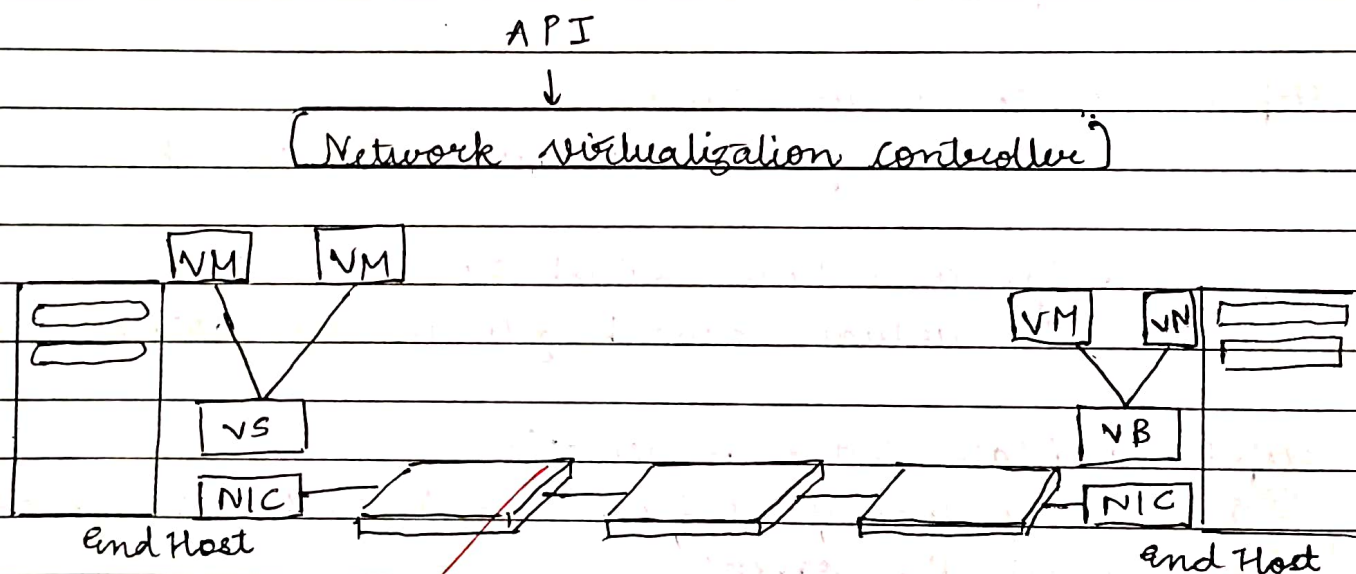 API
Network virtualization controller
VM VM
VM VN
VS VB
NIC NIC
End Host End Host